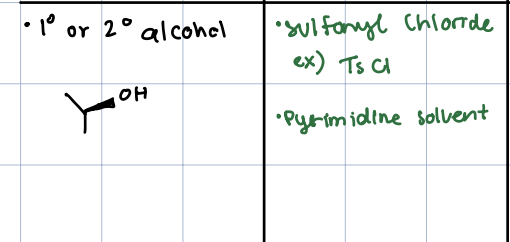 • 1° or 2° alcohol
OH
• sulfonyl Chloride
ex) TsCl
• Pyrimidine solvent